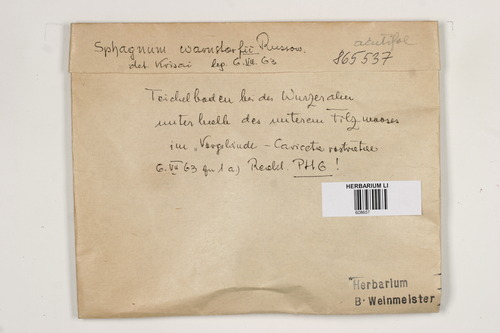 Sphagnum warnstorfii Russow.
acutifol
det. Krisai leg. 6.VII.63
865537
Teichelboden bei der Wurzeralm
unterhalb des unteren Filzmooses
im "Vorgelände - Cariceta rostratae
6.VII 63 1a) Reakt. PH6!
HERBARIUM LI
Herbarium
B. Weinmeister